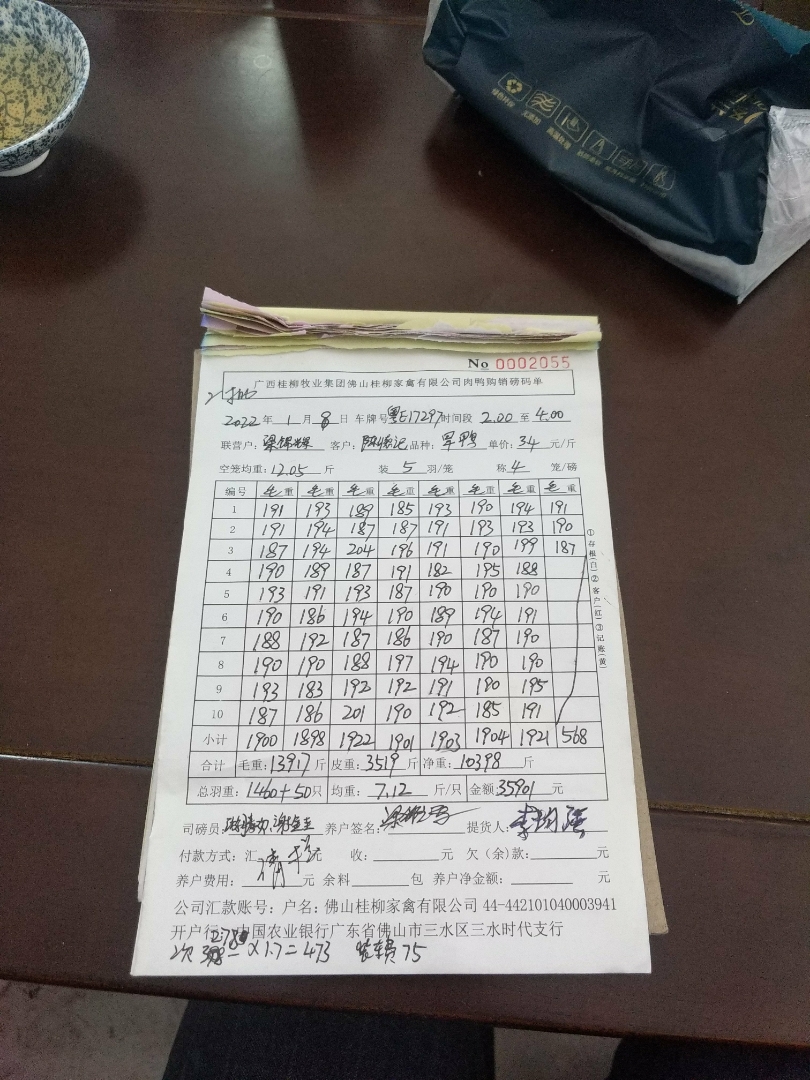 No 0002055
广西桂柳牧业集团佛山桂柳家禽有限公司肉鸭购销磅码单
2022年 1月 8日 车牌号 粤E17297 时间段 2.00 至 4.00
联营户: 客户: 品种: 旱鸭 单价: 3.4 元/斤
空笼均重: 12.05 斤 装 5 羽/笼 称 4 笼/磅
编号 毛重 毛重 毛重 毛重 毛重 毛重 毛重 毛重
1 191 193 189 185 193 190 194 191
2 191 194 187 187 191 193 193 190
3 187 194 204 196 191 190 199 187
4 190 189 187 191 182 195 188
5 193 191 193 187 190 190 190
6 190 186 194 190 189 194 191
7 188 192 187 186 190 187 190
8 190 190 188 197 194 190 190
9 193 183 192 192 191 180 195
10 187 186 201 190 192 185 191
小计 1900 1898 1922 1901 1903 1904 1921 568
合计 毛重: 13917 斤 皮重: 3519 斤 净重: 10398 斤
总羽重: 1460+50 只 均重: 7.12 斤/只 金额: 35901 元
①存根(白)②客户(红)③记账(黄)
司磅员: 养户签名: 提货人:
付款方式: 汇 元 收: 元 欠(余)款: 元
养户费用: 元 余料 包 养户净金额: 元
公司汇款账号: 户名: 佛山桂柳家禽有限公司 44-442101040003941
开户行: 中国农业银行广东省佛山市三水区三水时代支行
278 x1.7=473 装车费75